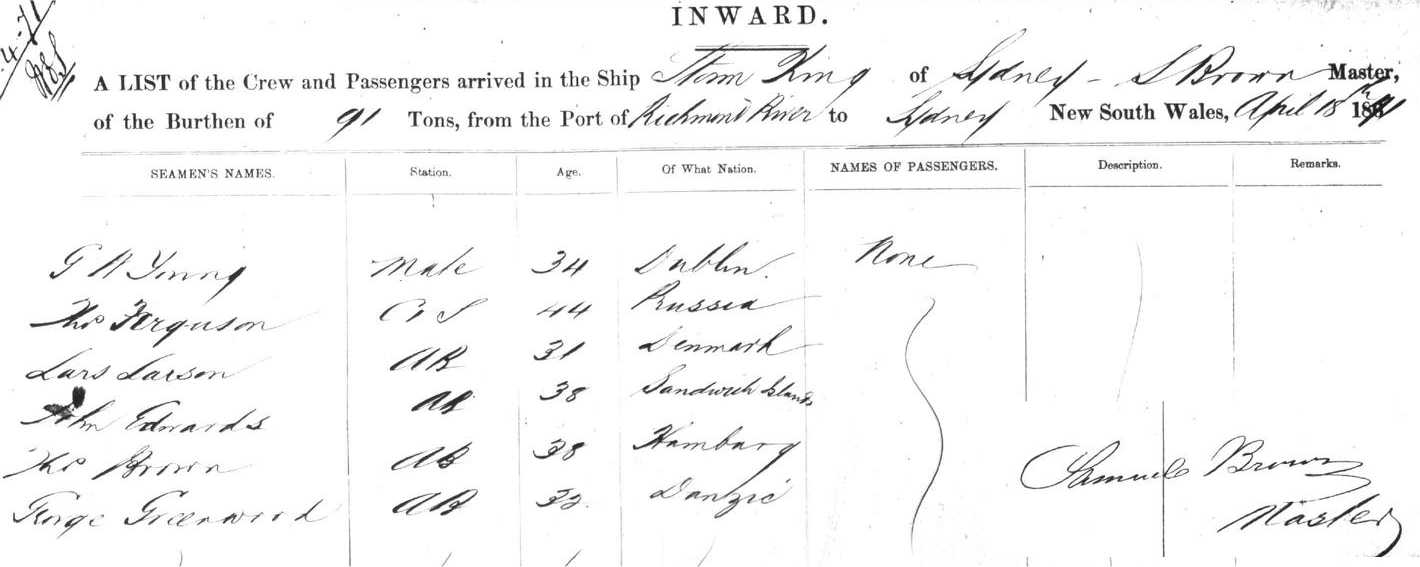 INWARD.
A LIST of the Crew and Passengers arrived in the Ship Storm King of Sydney - S Brown Master,
of the Burthen of 91 Tons, from the Port of Richmond River to Sydney New South Wales, April 18th 1871
SEAMEN'S NAMES. Station. Age. Of What Nation. NAMES OF PASSENGERS. Description. Remarks.
Young Mate 34 Dublin. None
Thos Ferguson C & S 44 Russia
Lars Larson AB 31 Denmark
John Edwards AB 38 Sandwich Islands
Thos Brown AB 38 Hamburg
George Greenwood AB Danzic
Samuel Brown
Master